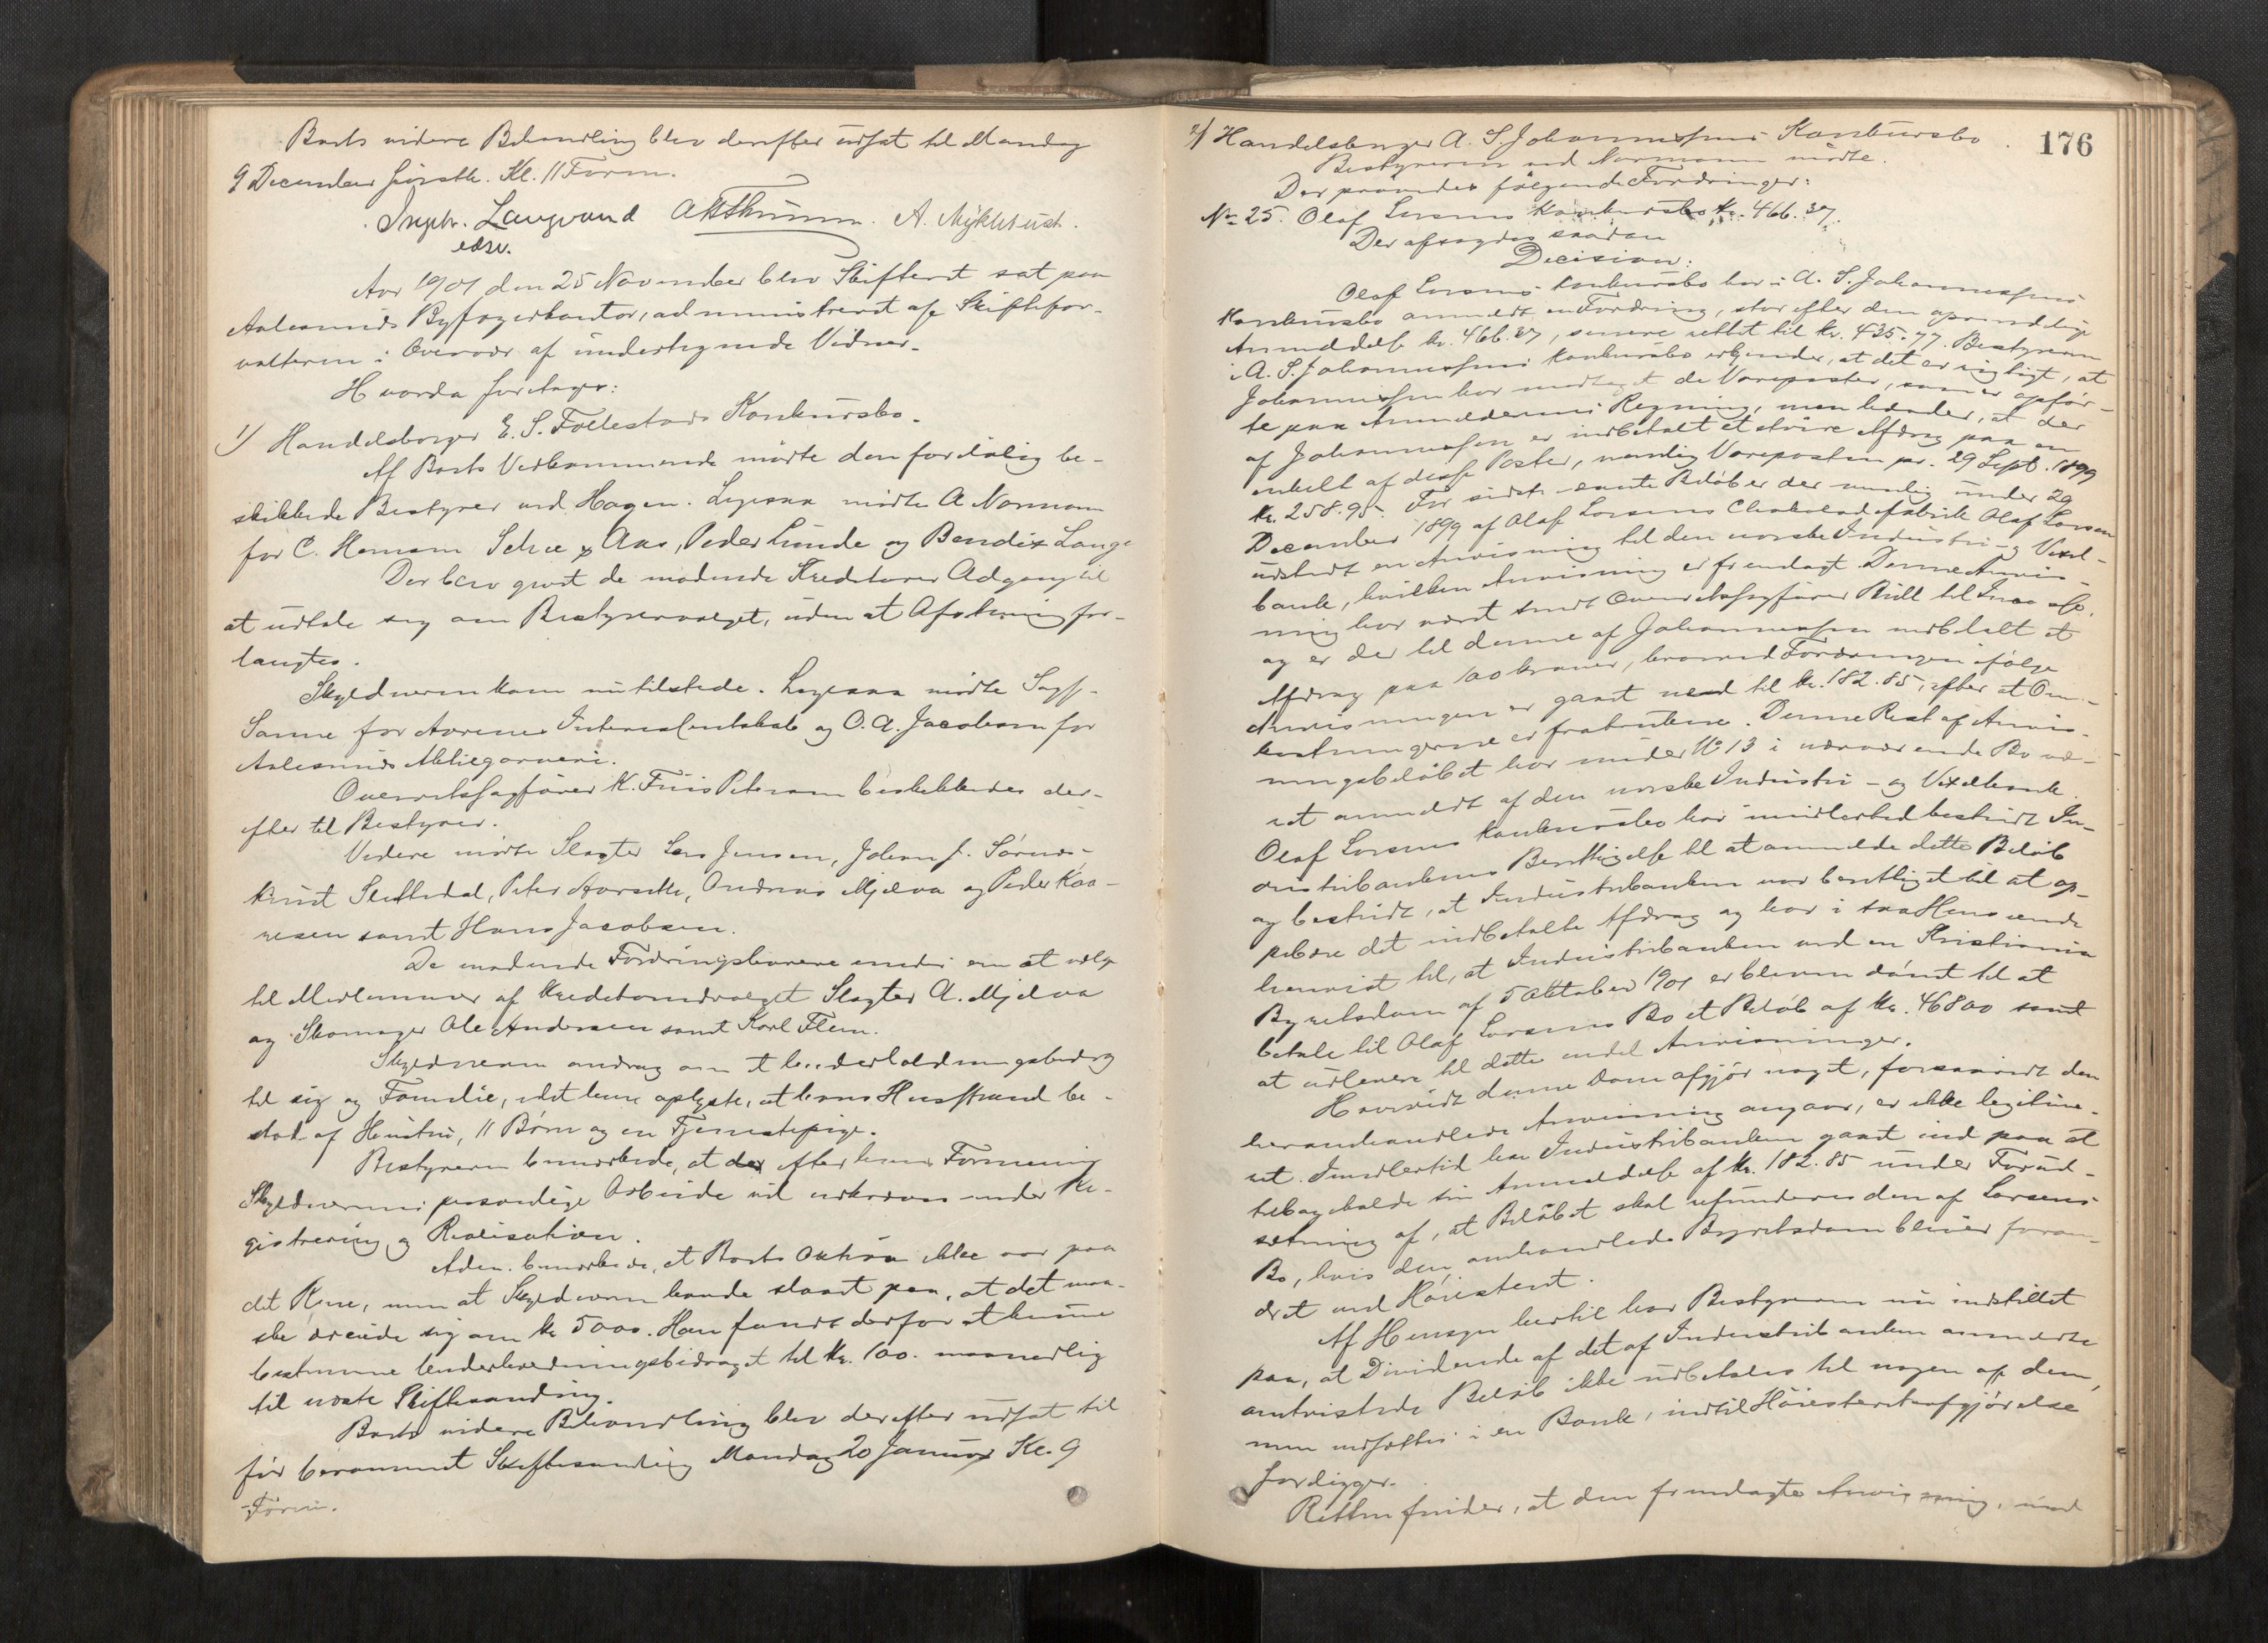 Boets videre Behandling blev derefter udsat til Mandag
9 December førstk. Kl. 11 Form.
Ingbr. Langvand A. Myklebust.
edsv.
Aar 1901 den 25 November blev Skifteret sat paa
Aalesunds Byfogedkontor, administreret af Skiftefor-
valteren i Overvær af undertegnede Vidner.
Hvorda foretages:
1) Handelsborger E. S. Follestads Konkursbo.
Af Boets Vedkommende mødte den foreløbig be-
skikkede Bestyrer ved Hagen. Ligesaa mødte A Normann
for C. Hemann Schee & Aas, Peder Lunde og Bendix Lange
Der blev givet de mødende Kreditorer Adgang til
at udtale sig om Bestyrervalget, uden at Afstemning for-
langtes.
Skyldneren kom nu tilstede. Ligesaa mødte Sagf.
Sanne for Interessentskab og O. A. Jacobsen for
Aalesunds Meliegarveri.
Overretssagfører K. Friis Petersen beskikkedes der-
efter til Bestyrer.
Videre mødte Slagter Lars Jensen, Johan J.
Knut Slettedal, Peter Aarseth, Andreas Mjelva og Peder Kaa-
resen samt Hans Jacobsen.
De mødende Fordringshavere enedes om at vælge
til Medlemmer af Kreditorudvalget Slagter A. Mjelva
og Skomager Ole Andersen samt Karl Flem.
Skyldneren androg om et Underholdningsbidrag
til sig og Familie, idet hun oplyste, at hans Husstand be-
stod af Hustru, 11 Børn og en Tjenestepige.
Bestyreren bemærkede, at der efter hans Formening
Skyldnerens personlige Arbeide vil udkræves under Re-
gistrering og Realisation.
Adm. bemærkede, at Boets Aktiva ikke var paa
det Rene, men at Skyldneren havde slaaet paa, at det maa-
ske dreiede sig om kr 5000. Han fandt derfor at kunne
bestemme Underholdningsbidraget til kr. 100. maanedlig
til næste Skiftesamling.
Boets videre Behandling blev derefter udsat til
før berammet Skiftesamling Mandag 20 Januar Kl. 9
Form.
176
2) Handelsborger A. S. Johannessens Konkursbo.
Bestyreren ved Normann mødte.
Der prøvedes følgende Fordringer:
No 25. Olaf Larsens Konkursbo kr. 466.37.
Der afsagdes saadan
Decision:
Olaf Larsens Konkursbo har i A. S. Johannessens
Konkursbo anmeldt en Fordring, stor efter den oprindelige
Anmeldelse kr. 466.37, senere rettet til kr. 435.77. Bestyreren
i A. S. Johannessens Konkursbo erkjender, at det er rigtigt, at
Johannessen har modtaget de Vareposter, som er opfør-
te paa Anmelderens Regning, men hævder, at der
af Johannessen er indbetalt et større Afdrag paa en
enkelt af disse Poster, nemlig Vareposten pr. 29 Sept. 1899
kr. 258.95. For sidstnævnte Beløb er der nemlig under 29
December 1899 af Olaf Larsens Chokoladefabrik Olaf Larsen
udstedt en Anvisning til den norske Industri og Vexel-
bank, hvilken Anvisning er fremlagt. Denne Anvis-
ning har været sendt Overretssagfører Bull til Incasso,
og er der til denne af Johannessen indbetalt et
Afdrag paa 100 kroner, hvorved Fordringen ifølge
Anvisningen er gaaet ned til kr. 182.85, efter at Om-
kostningerne er fratrukne. Denne Rest af Anvis-
ningsbeløbet har under No 13 i nærværende Bo væ-
ret anmeldt af den norske Industri- og Vexelbank.
Olaf Larsens Konkursbo har imidlertid bestridt In-
dustribankens Berettigelse til at anmelde dette Beløb
og bestridt, at Industribanken var berettiget til at op-
pebære det indbetalte Afdrag og har i saa Henseende
henvist til, at Industribanken ved en Kristiania
Byretsdom af 5 Oktober 1901 er bleven dømt til at
betale til Olaf Larsens Bo et Beløb af kr. 46800 samt
at udlevere til dette endel Anvisninger.
Hvorvidt denne Dom afgjør noget, forsaavidt den
heromhandlede Anvisning angaar, er ikke legitime-
ret. Imidlertid har Industribanken gaaet ind paa at
tilbagekalde sin Anmeldelse af kr. 182.85 under Forud-
sætning af, at Beløbet skal refunderes den af Larsens
Bo, hvis den omhandlede Byretsdom bliver foran-
dret ved Høiesteret.
Af Hensyn hertil har Bestyreren nu indstillet
paa, at Dividende af det af Industribanken anmeldte
omtvistede Beløb ikke udbetales til nogen af dem,
men indsættes i en Bank, indtil Høiesteretsafgjørelse
foreligger.
Retten finder, at den fremlagte Anvisning, ved